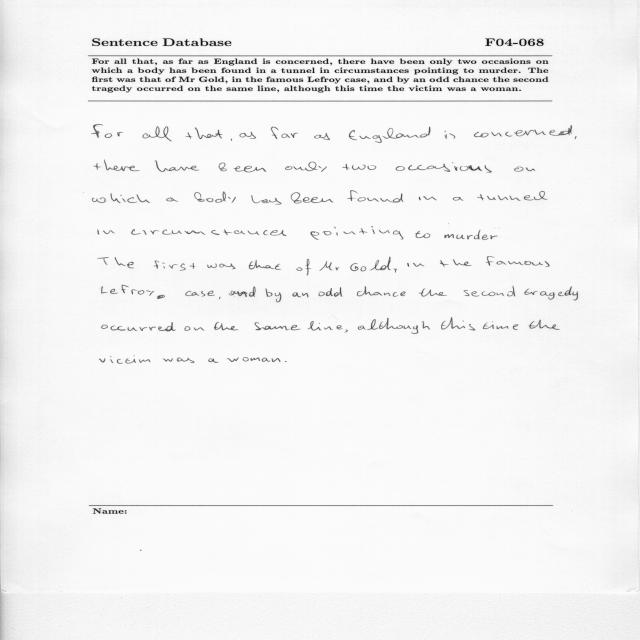 Sentence Database F04-068
For all that, as far as England is concerned, there have been only two occasions on
which a body has been found in a tunnel in circumstances pointing to murder. The
first was that of Mr Gold, in the famous Lefroy case, and by an odd chance the second
tragedy occurred on the same line, although this time the victim was a woman.
For all that, as far as England is concerned,
there have been only two occasions on
which a body has been found in a tunnel
in circumstances pointing to murder
The first was that of Mr Gold, in the famous
Lefroy, case, and by an odd chance the second tragedy
occurred on the same line, although this time the
victim was a woman.
Name: